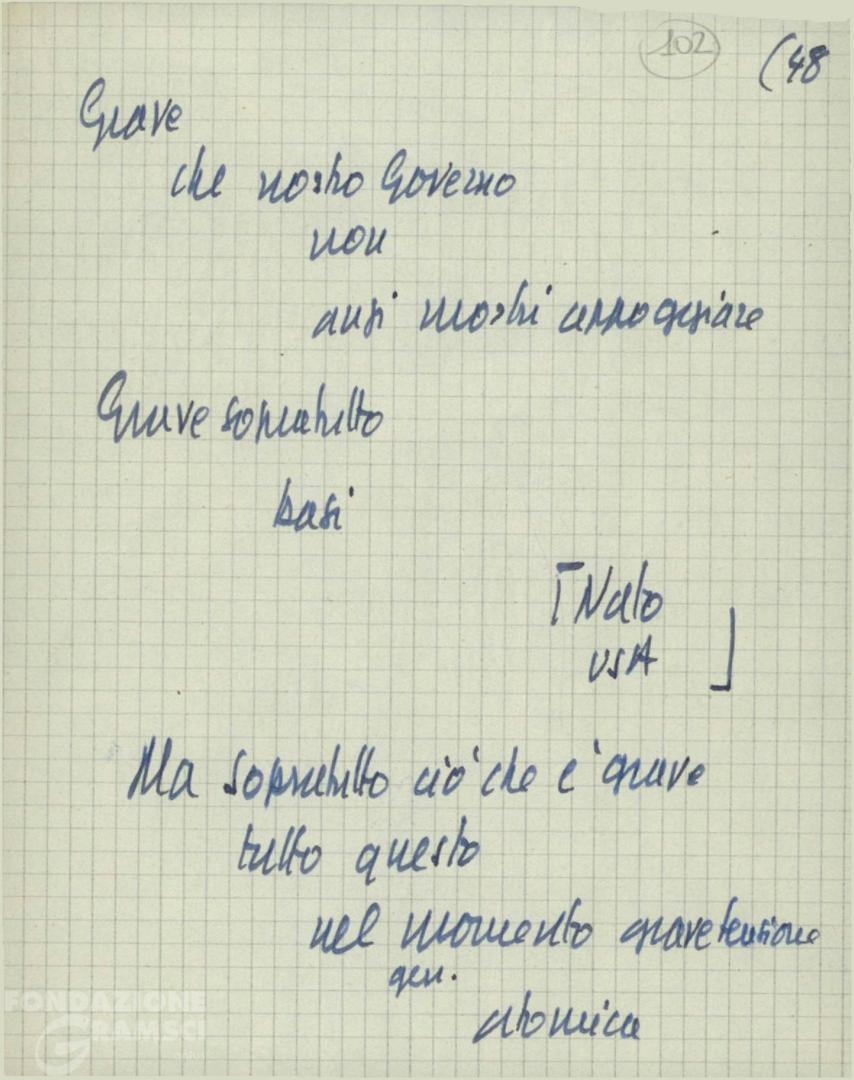 102
(48
Grave
che nostro Governo
non
anzi mostri appoggiare
Grave sopratutto
basi
[Nato
USA ]
Ma sopratutto ciò che è grave
tutto questo
nel momento grave tensione
gen.
atomica
FONDAZIONE
GRAMSCI